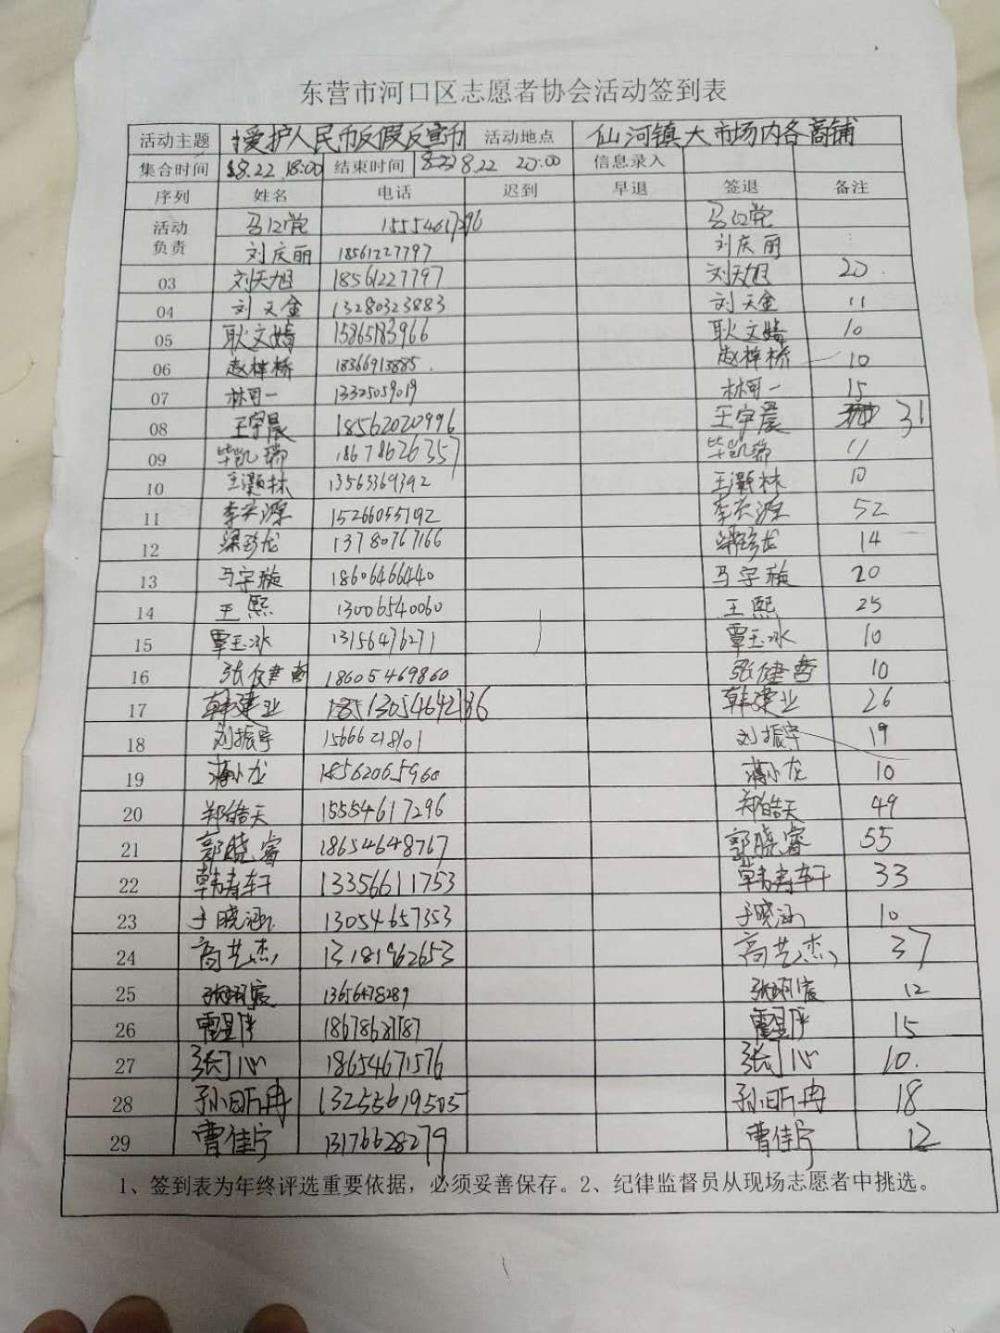 东营市河口区志愿者协会活动签到表
活动主题 爱护人民币反假反宣币 活动地点 仙河镇大市场内各商铺
集合时间 8.22 18:00 结束时间 8.22 20:00 信息录入
序列 姓名 电话 迟到 早退 签退 备注
活动负责 15554617296
刘庆丽 18561227797 刘庆丽
03 刘天旭 18561227797 刘天旭 20
04 刘天金 13280323883 刘天金 11
05 耿文嫱 15865183966 耿文嫱 10
06 赵梓桥 18366913885 赵梓桥 10
07 林可一 13325059019 林可一 15
08 王宇晨 18562020996 王宇晨 31
09 毕凯瑞 18678626357 毕凯瑞 11
10 王灏林 13563369392 王灏林 10
11 15266055192 52
12 梁珍龙 13780767166 梁珍龙 14
13 马宇璇 18606466440 马宇璇 20
14 王熙 13006540060 王熙 25
15 覃玉冰 13156476271 覃玉冰 10
16 张健哲 18605469860 张健哲 10
17 韩建业 韩建业 26
18 刘振宇 15666218101 刘振宇 19
19 蒋小龙 18562065960 蒋小龙 10
20 郑皓天 15554617296 郑皓天 49
21 郭晓睿 18654648767 郭晓睿 55
22 韩寿轩 13356611753 韩寿轩 33
23 于晓涵 13054657353 于晓涵 10
24 高艺杰 13181962653 高艺杰 37
25 13656478289 12
26 18678681787 15
27 18654671576 10
28 孙昕冉 13255619505 孙昕冉 18
29 曹佳宁 13176628279 曹佳宁 12
1、签到表为年终评选重要依据，必须妥善保存。2、纪律监督员从现场志愿者中挑选。